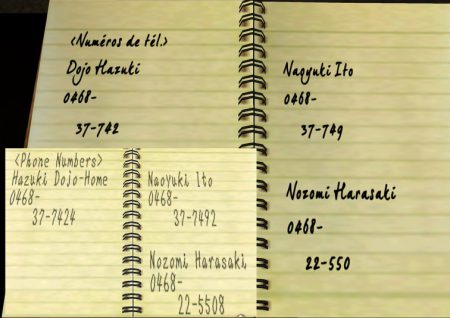 <Numéros de tél.>
Dojo Hazuki
0468-
37-742
Naoyuki Ito
0468-
37-749
Nozomi Harasaki
0468-
22-550
<Phone Numbers>
Hazuki Dojo-Home
0468-
37-7424
Naoyuki Ito
0468-
37-7492
Nozomi Harasaki
0468-
22-5508